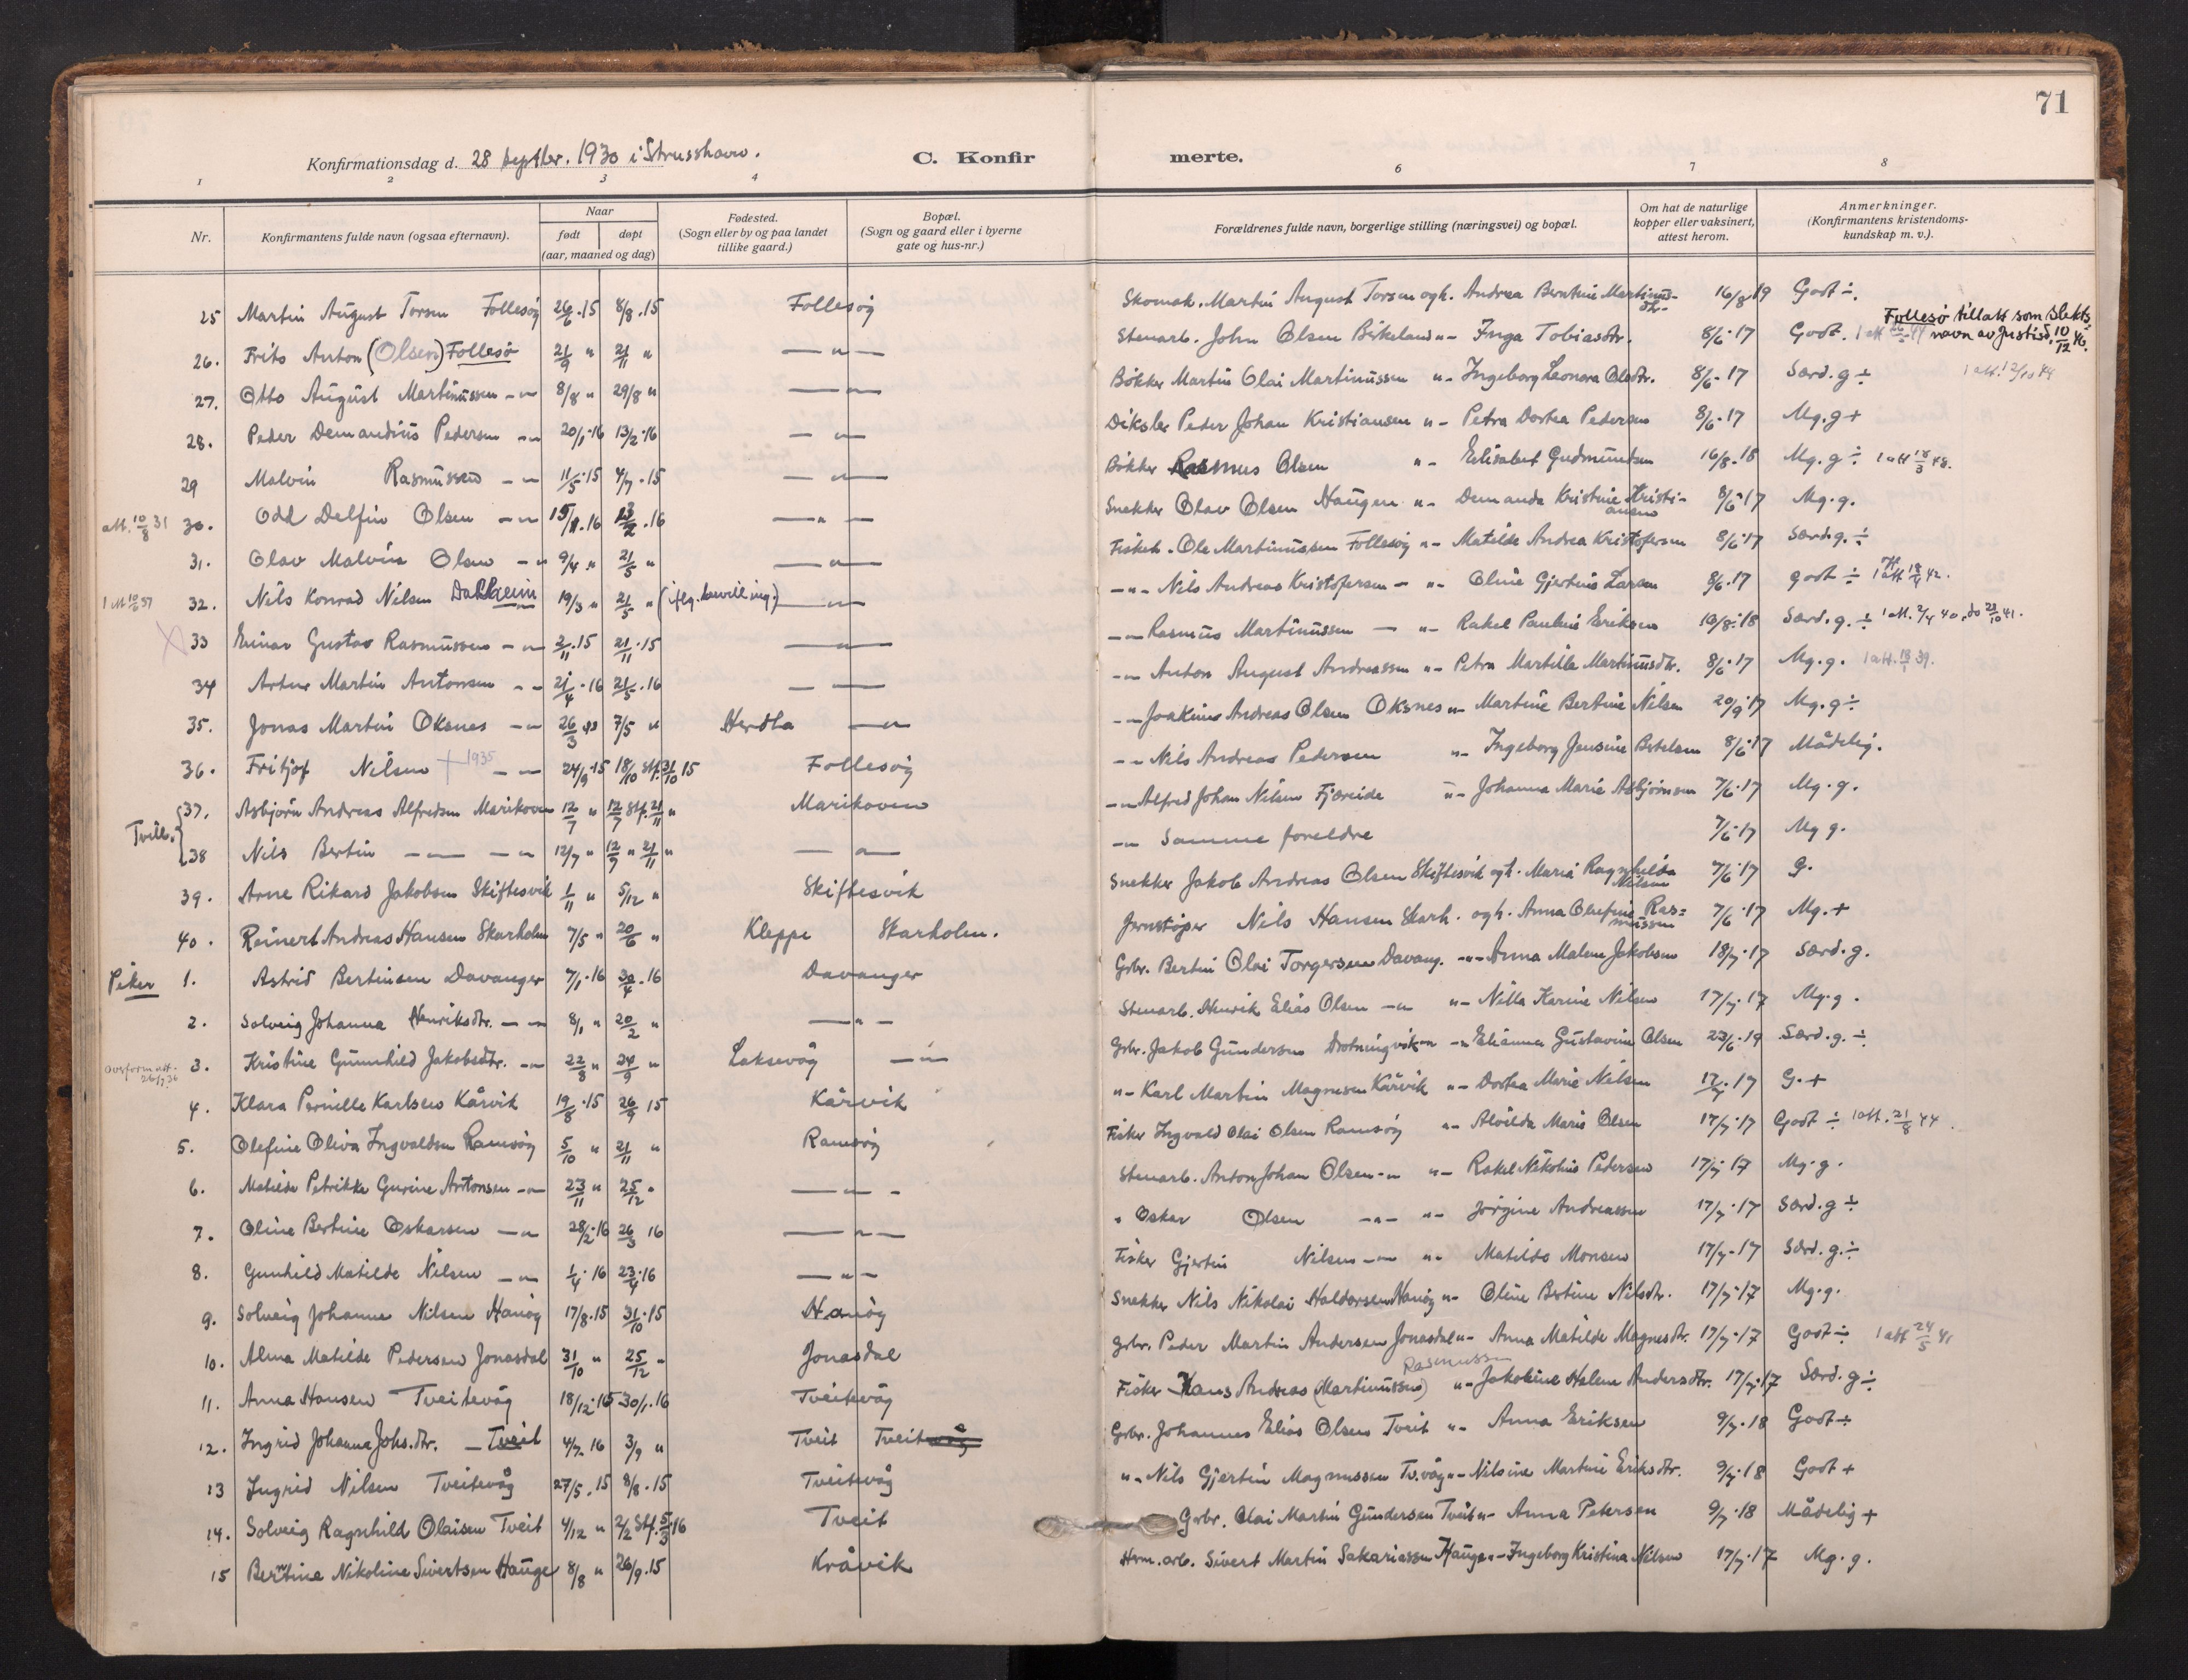 71
Konfirmationsdag d. 28 septbr. 1930 i Strusshavn.
C. Konfirmerte.
1 2 3 4 6 7 8
Nr.
Konfirmantens fulde navn (ogsaa efternavn).
Naar
født døpt
(aar, maaned og dag)
Fødested.
(Sogn eller by og paa landet
tillike gaard.)
Bopæl.
(Sogn og gaard eller i byerne
gate og hus-nr.)
Forældrenes fulde navn, borgerlige stilling (næringsvei) og bopæl.
Om hat de naturlige
kopper eller vaksinert,
attest herom.
Anmerkninger.
(Konfirmantens kristendoms-
kundskap m. v.).
25 Martin August Torsen Follesøy 26/6.15 8/8.15 Follesøy Skomak. Martin August Torsen ogh. Andrea Berntine Martinus- 16/8 19 Godt ÷.
26. Frits Anton (Olsen) Follesø 21/9 " 21/11 " —"— Stenarb. John Olsen Birkeland "- Inga Tobiasdtr. 8/6.17 Godt. Follesø tillatt som slekts-
navn av Justisd. 10/12 46.
27. Otto August Martinussen -"- 8/8 " 29/8 " —"— Bøkker Martin Olai Martinussen "- Ingeborg Leonora Olsdtr. 8/6-17 Særd. g ÷
28. Peder Demandius Pedersen -"- 20/1.16 13/2.16 —"— Diksler Peder Johan Kristiansen "- Petra Dortea Pedersen 8/6.17 Mg. g +
29 Malvin Rasmussen -"- 11/5.15 4/7.15 —"— Bøkker Rasmus Olsen "- Elisabet Gudmundsen 16/8.18 Mg. g ÷ 1 att 18/3 48.
att. 10/8 31 30. Odd Delfin Olsen -"- 15/1.16 13/2.16 —"— Snekker Olav Olsen Haugen "- Demanda Kristine Kristi-
ansen 8/6.17 Mg. g.
31. Olav Malvin Olsen -"- 9/4 " 21/5 " —"— Fisker. Ole Martinussen Follesøy "- Matilde Andrea Kristofersen 8/6.17 Særd. g. ÷
1 att 10/6 37 32. Nils Konrad Nilsen Dahlheim 19/3 " 21/5 " (iflg. bevilling.) —"— -"- Nils Andreas Kristofersen - "- Oline Gjertine Larsen 8/6.17 godt ÷ 1 att 18/4 42.
33 Einar Gustav Rasmussen -"- 2/11.15 21/11.15 —"— -"- Rasmus Martinussen — "- Rakel Pauline Eriksen 16/8.18 Særd. g. ÷ 1 att. 2/4 40, do 23/10 41.
34 Artur Martin Antonsen -"- 21/4.16 21/5.16 — — -"- Anton August Andreassen "- Petra Martilla Martinusdtr. 8/6.17 Mg. g. 1 att. 18/1 39.
35. Jonas Martin Oksnes -"- 26/3 " 7/5 " Herdla —"— -"- Joakim Andreas Olsen Oksnes "- Martine Bertine Nilsen 20/9.17 Mg. g ÷
36. Fritjof Nilsen + 1935 -"- 24/9.15 18/10 stf. 31/10 15 Follesøy -"- Nils Andreas Pedersen "- Ingeborg Jensine Botelsen 8/6.17 Mådelig.
Tvill. 37. Asbjørn Andreas Alfredsen Marikoven 12/7 " 12/7 stf. 21/11 " Marikoven -"- Alfred Johan Nilsen Fjæreide "- Johanna Marie Asbjørnsen 7/6.17 Mg. g.
38 Nils Bertin -"- -"- 12/7 " 12/7 " 21/11 " —"— -"- Samme foreldre 7/6.17 Mg g.
39. Arne Rikard Jakobsen Skiftesvik 1/11 " 5/12 " Skiftesvik Snekker Jakob Andreas Olsen Skiftesvik ogh. Maria Ragnhilda
Nilsen 7/6.17 g.
40. Reinert Andreas Hansen Skarholm 7/5 " 20/6 " Kleppe Skarholm. Jernstøper Nils Hansen Skarh. ogh. Anna Olufine Ras-
mussen 7/6.17 Mg. +
Piker 1. Astrid Bertinsen Davanger 7/1.16 30/4.16 Davanger Grbr. Bertin Olai Torgersen Davang. -"- Anna Malene Jakobsen 18/7.17 Særd. g.
2. Solveig Johanna Henriksdtr. -"- 8/1 " 20/2 " —"— Stenarb. Henrik Elias Olsen -"- "- Nilla Karine Nilsen 17/7.17 Mg. g.
3. Kristine Gunnhild Jakobsdtr. -"- 22/8 " 24/9 " Laksevåg —"— Grbr. Jakob Gundersen Drotningvik -"- "- Elianna Gustavine Olsen 23/6.19 Særd. g. ÷
4. Klara Pernille Karlsen Kårvik 19/8.15 26/9 15 Kårvik "- Karl Martin Magnesen Kårvik "- Dortea Marie Nilsen 17/7.17 G. +
5. Olefine Oliva Ingvaldsen Ramsøy 5/10 " 21/11 " Ramsøy Fisker Ingvald Olai Olsen Ramsøy "- Alvilda Marie Olsen 17/7.17 Godt ÷ 1 att. 21/8 44.
6. Matilde Petrikke Gurine Antonsen -"- 23/11 " 25/12 " —"— Stenarb. Anton Johan Olsen -"- "- Rakel Nikoline Pedersen 17/7.17 Mg. g.
7. Oline Bertine Oskarsen -"- 28/2.16 26/3 16 —"— " Oskar Olsen -"- "- Jørgine Andreassen 17/7.17 Særd. g ÷
8. Gunhild Matilde Nilsen -"- 1/4.16 23/4.16 —"— Fisker Gjertin Nilsen -"- "- Matilde Monsen 17/7-17 Særd. g. ÷
9. Solveig Johanne Nilsen Hanøy 17/8.15 31/10.15 Hanøy Snekker Nils Nikolai Haldorsen Hanøy "- Oline Bertine Nilsdtr. 17/7.17 Mg. g.
10. Alma Matilde Pedersen Jonasdal 31/10 " 25/12 " Jonasdal Grbr. Peder Martin Andersen Jonasdal "- Anna Matilde Magnesdtr. 17/7.17 Godt ÷ 1 att 24/5 41
11. Anna Hansen Tveitevåg 18/12.15 30/1.16 Tveitevåg Fisker Hans Andreas (Martinussen) Rasmussen "- Jakobine Helene Andersdtr. 17/7.17 Særd. g ÷
12. Ingrid Johanna Johs.dtr. - Tveit 4/7.16 3/9 " Tveit Tveitevåg Grbr. Johannes Elias Olsen Tveit "- Anna Eriksen 9/7.18 Godt ÷
13 Ingrid Nilsen Tveitevåg 27/5.15 8/8.15 Tveitevåg "- Nils Gjertin Magnussen Tv.våg "- Nilsine Martine Eriksdtr. 9/7.18 Godt +
14. Solveig Ragnhild Olaisen Tveit 4/12 " 2/2 stf. 5/3.16 Tveit Grbr. Olai Martin Gundersen Tveit "- Anna Petersen 9/7.18 Mådelig +
15 Bertine Nikoline Sivertsen Hauge 8/8 " 26/9.15 Kråvik Hrm. arb. Sivert Martin Sakariassen Hauge "- Ingeborg Kristina Nilsen 17/7.17 Mg. g.